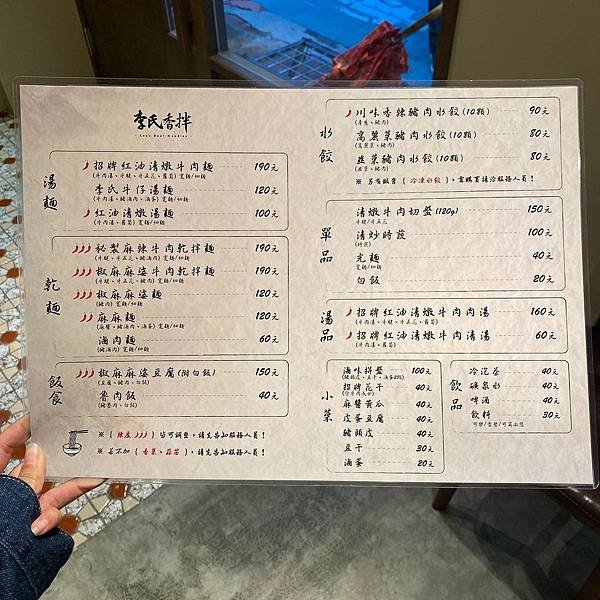 李氏香拌
Lee's Beef Noodles
湯麵
招牌紅油清燉牛肉麵 190元
(牛肉湯、牛腱、牛五花、蘿蔔) 寬麵/細麵
李氏牛仔湯麵 120元
(牛肉湯、豬滷肉、滷蛋) 寬麵/細麵
紅油清燉湯麵 100元
(牛肉湯、蘿蔔) 寬麵/細麵
乾麵
秘製麻辣牛肉乾拌麵 190元
(牛腱、牛五花) 寬麵/細麵
椒麻麻辣牛肉乾拌麵 190元
(牛腱、牛五花、豬滷肉) 寬麵/細麵
椒麻麻婆麵 120元
(豬肉) 寬麵/細麵
麻麻麵 120元
(麻醬、豬滷肉、滷蛋) 寬麵/細麵
滷肉麵 60元
(豬滷肉) 寬麵/細麵
飯食
椒麻麻婆豆腐 (附白飯) 150元
(豆腐、豬肉、白飯)
魯肉飯 40元
(豬魯肉、白飯)
※ ( 辣度 ) 皆可調整，請先告知服務人員！
※ 若不加 ( 香菜、蒜苗 )，請先告知服務人員！
水餃
川味香辣豬肉水餃 (10顆) 90元
高麗菜豬肉水餃 (10顆) 80元
(高麗菜、豬肉)
韭菜豬肉水餃 (10顆) 80元
(韭菜、豬肉)
※ 另有販售 ( 冷凍水餃 )，需購買請洽服務人員！
單品
清燉牛肉切盤 (120g) 150元
牛腱/牛五花
清炒時蔬 100元
(時蔬)
光麵 40元
寬麵/細麵
白飯 20元
湯品
招牌紅油清燉牛肉肉湯 160元
(牛肉湯、牛腱、牛五花、蘿蔔)
招牌紅油清燉牛肉清湯 60元
(牛肉湯、蘿蔔)
小菜
滷味拼盤 100元
招牌花干 40元
麻醬黃瓜 40元
皮蛋豆腐 40元
豬頭皮 40元
豆干 30元
滷蛋 20元
飲品
冷泡茶 40元
礦泉水 40元
啤酒 40元
飲料 30元
可樂/雪碧/可爾必思